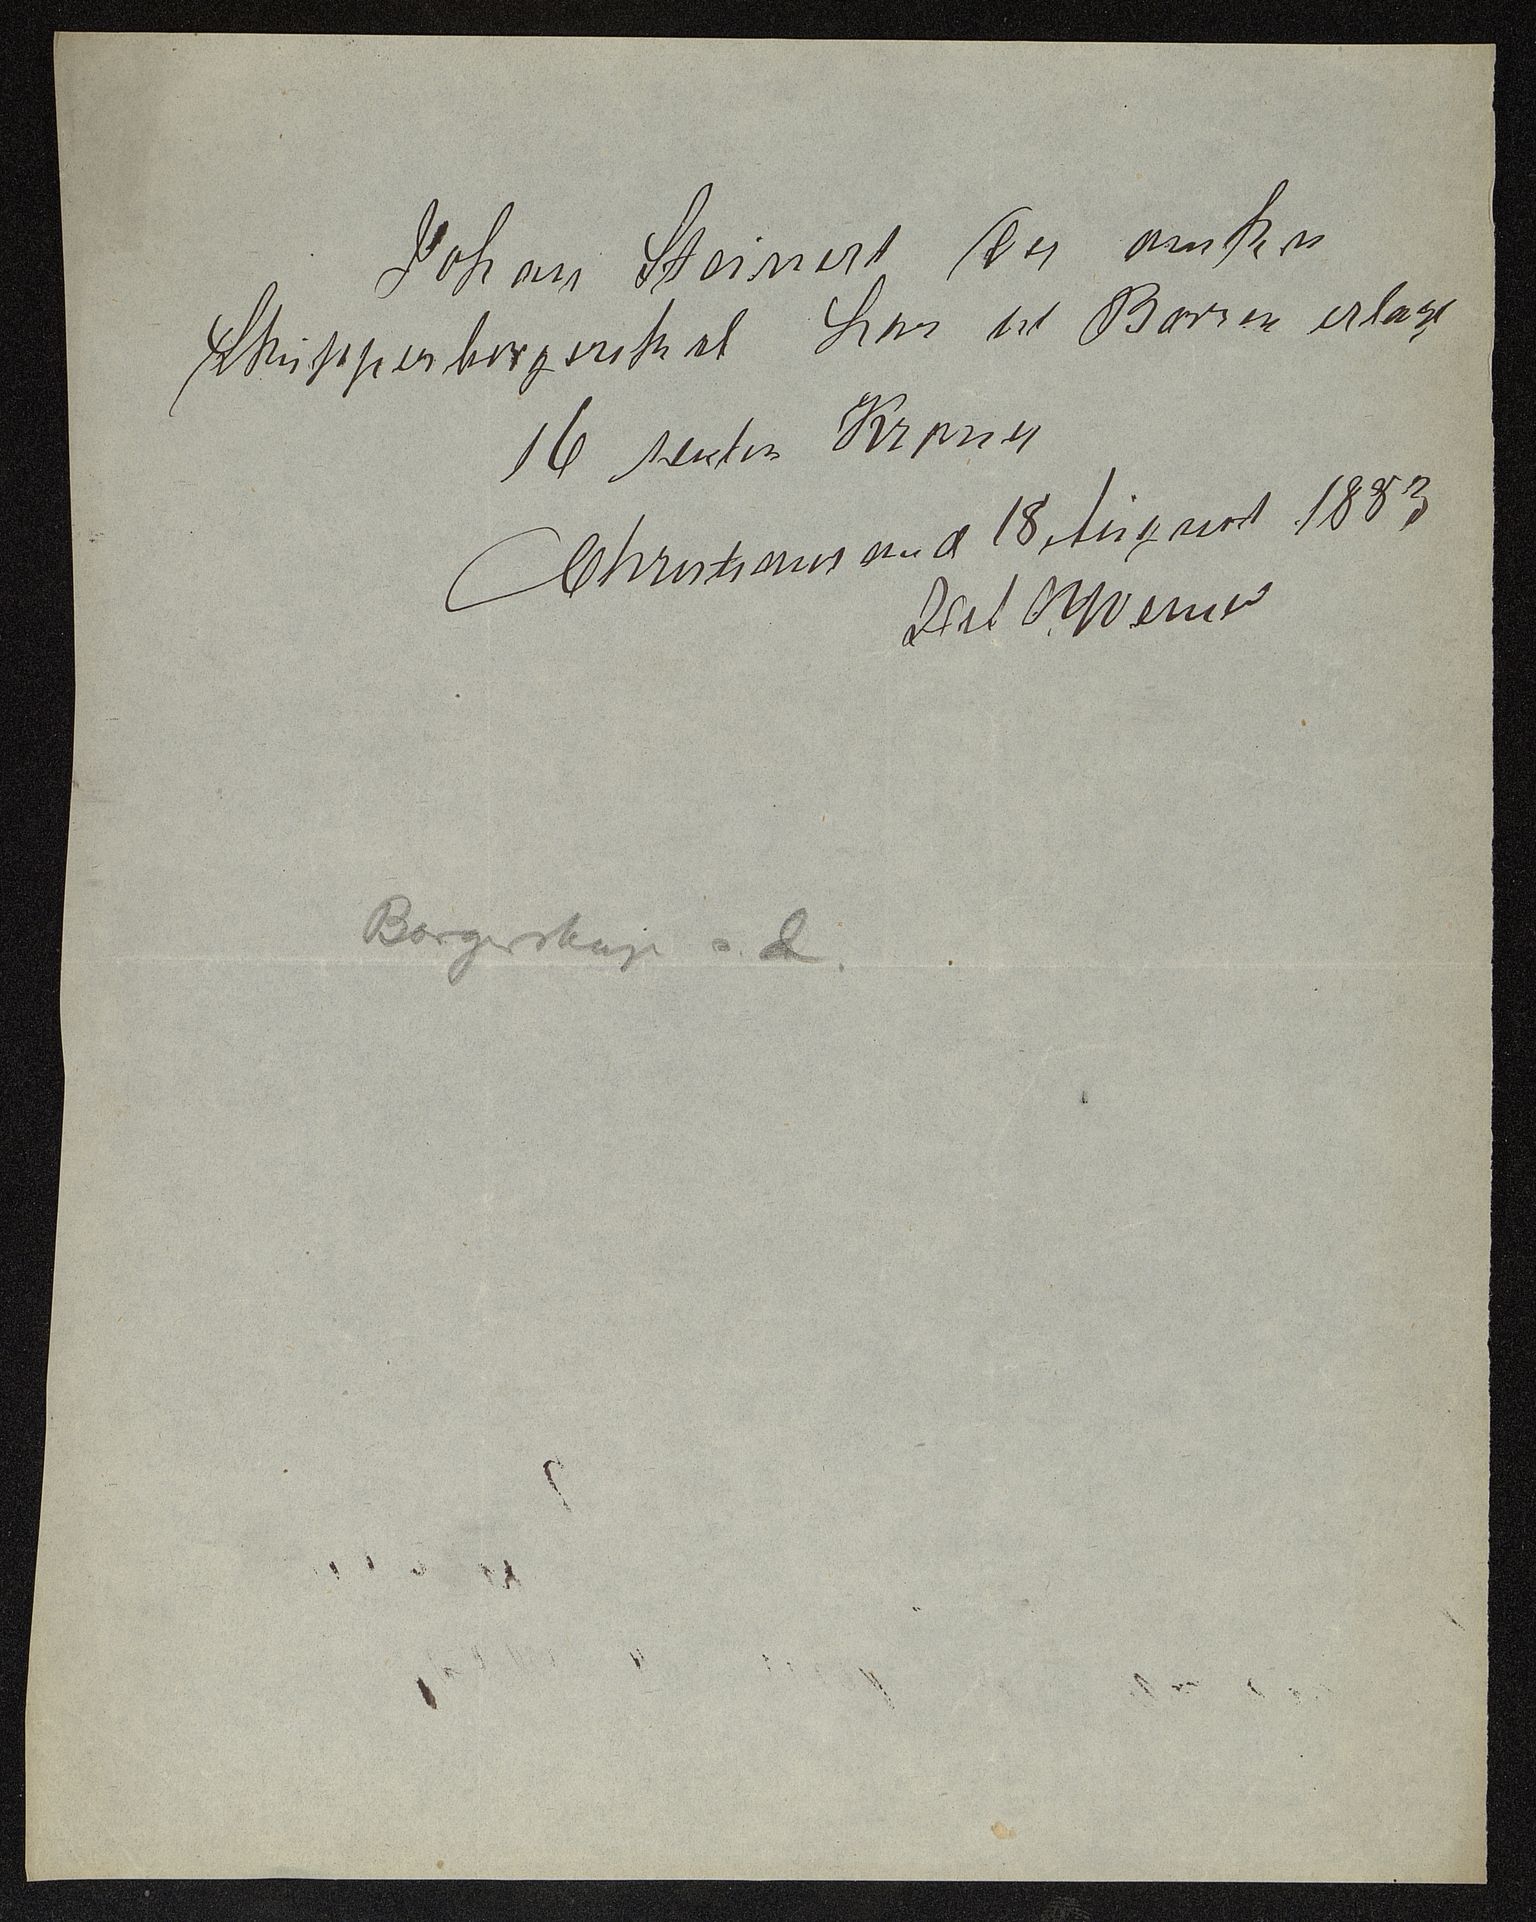 Johan Steinert der ønsker
Skipperborgerskab har til Børsen erlagt
16 sexten Kroner
Christianssand 18 August 1883
Werner
Borgerskap